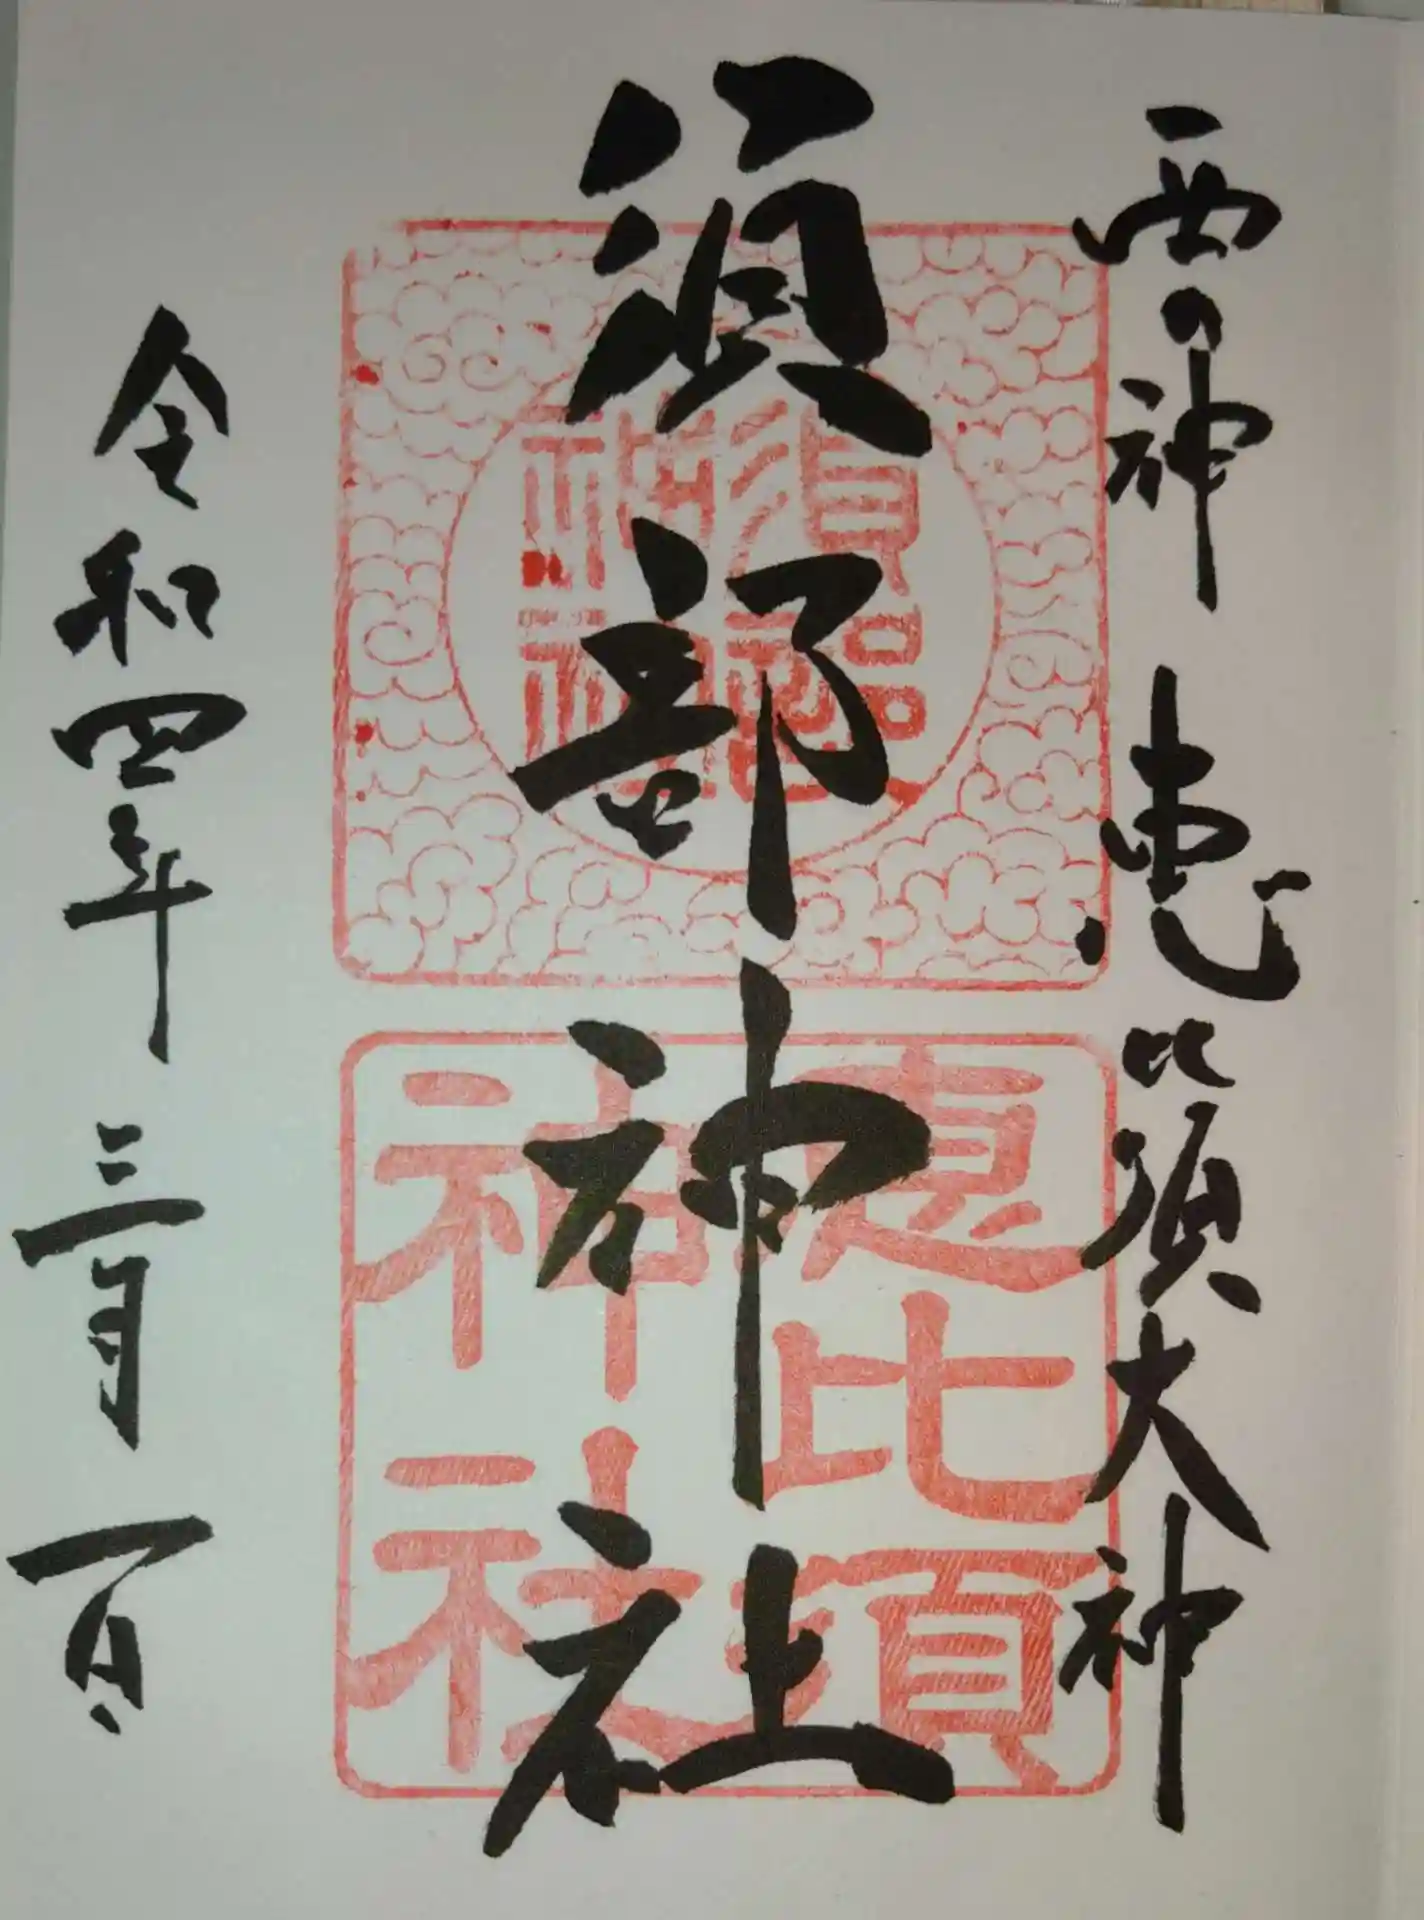 西の神 恵比須大神
須部神社
恵比須
神社
令和四年三月一日